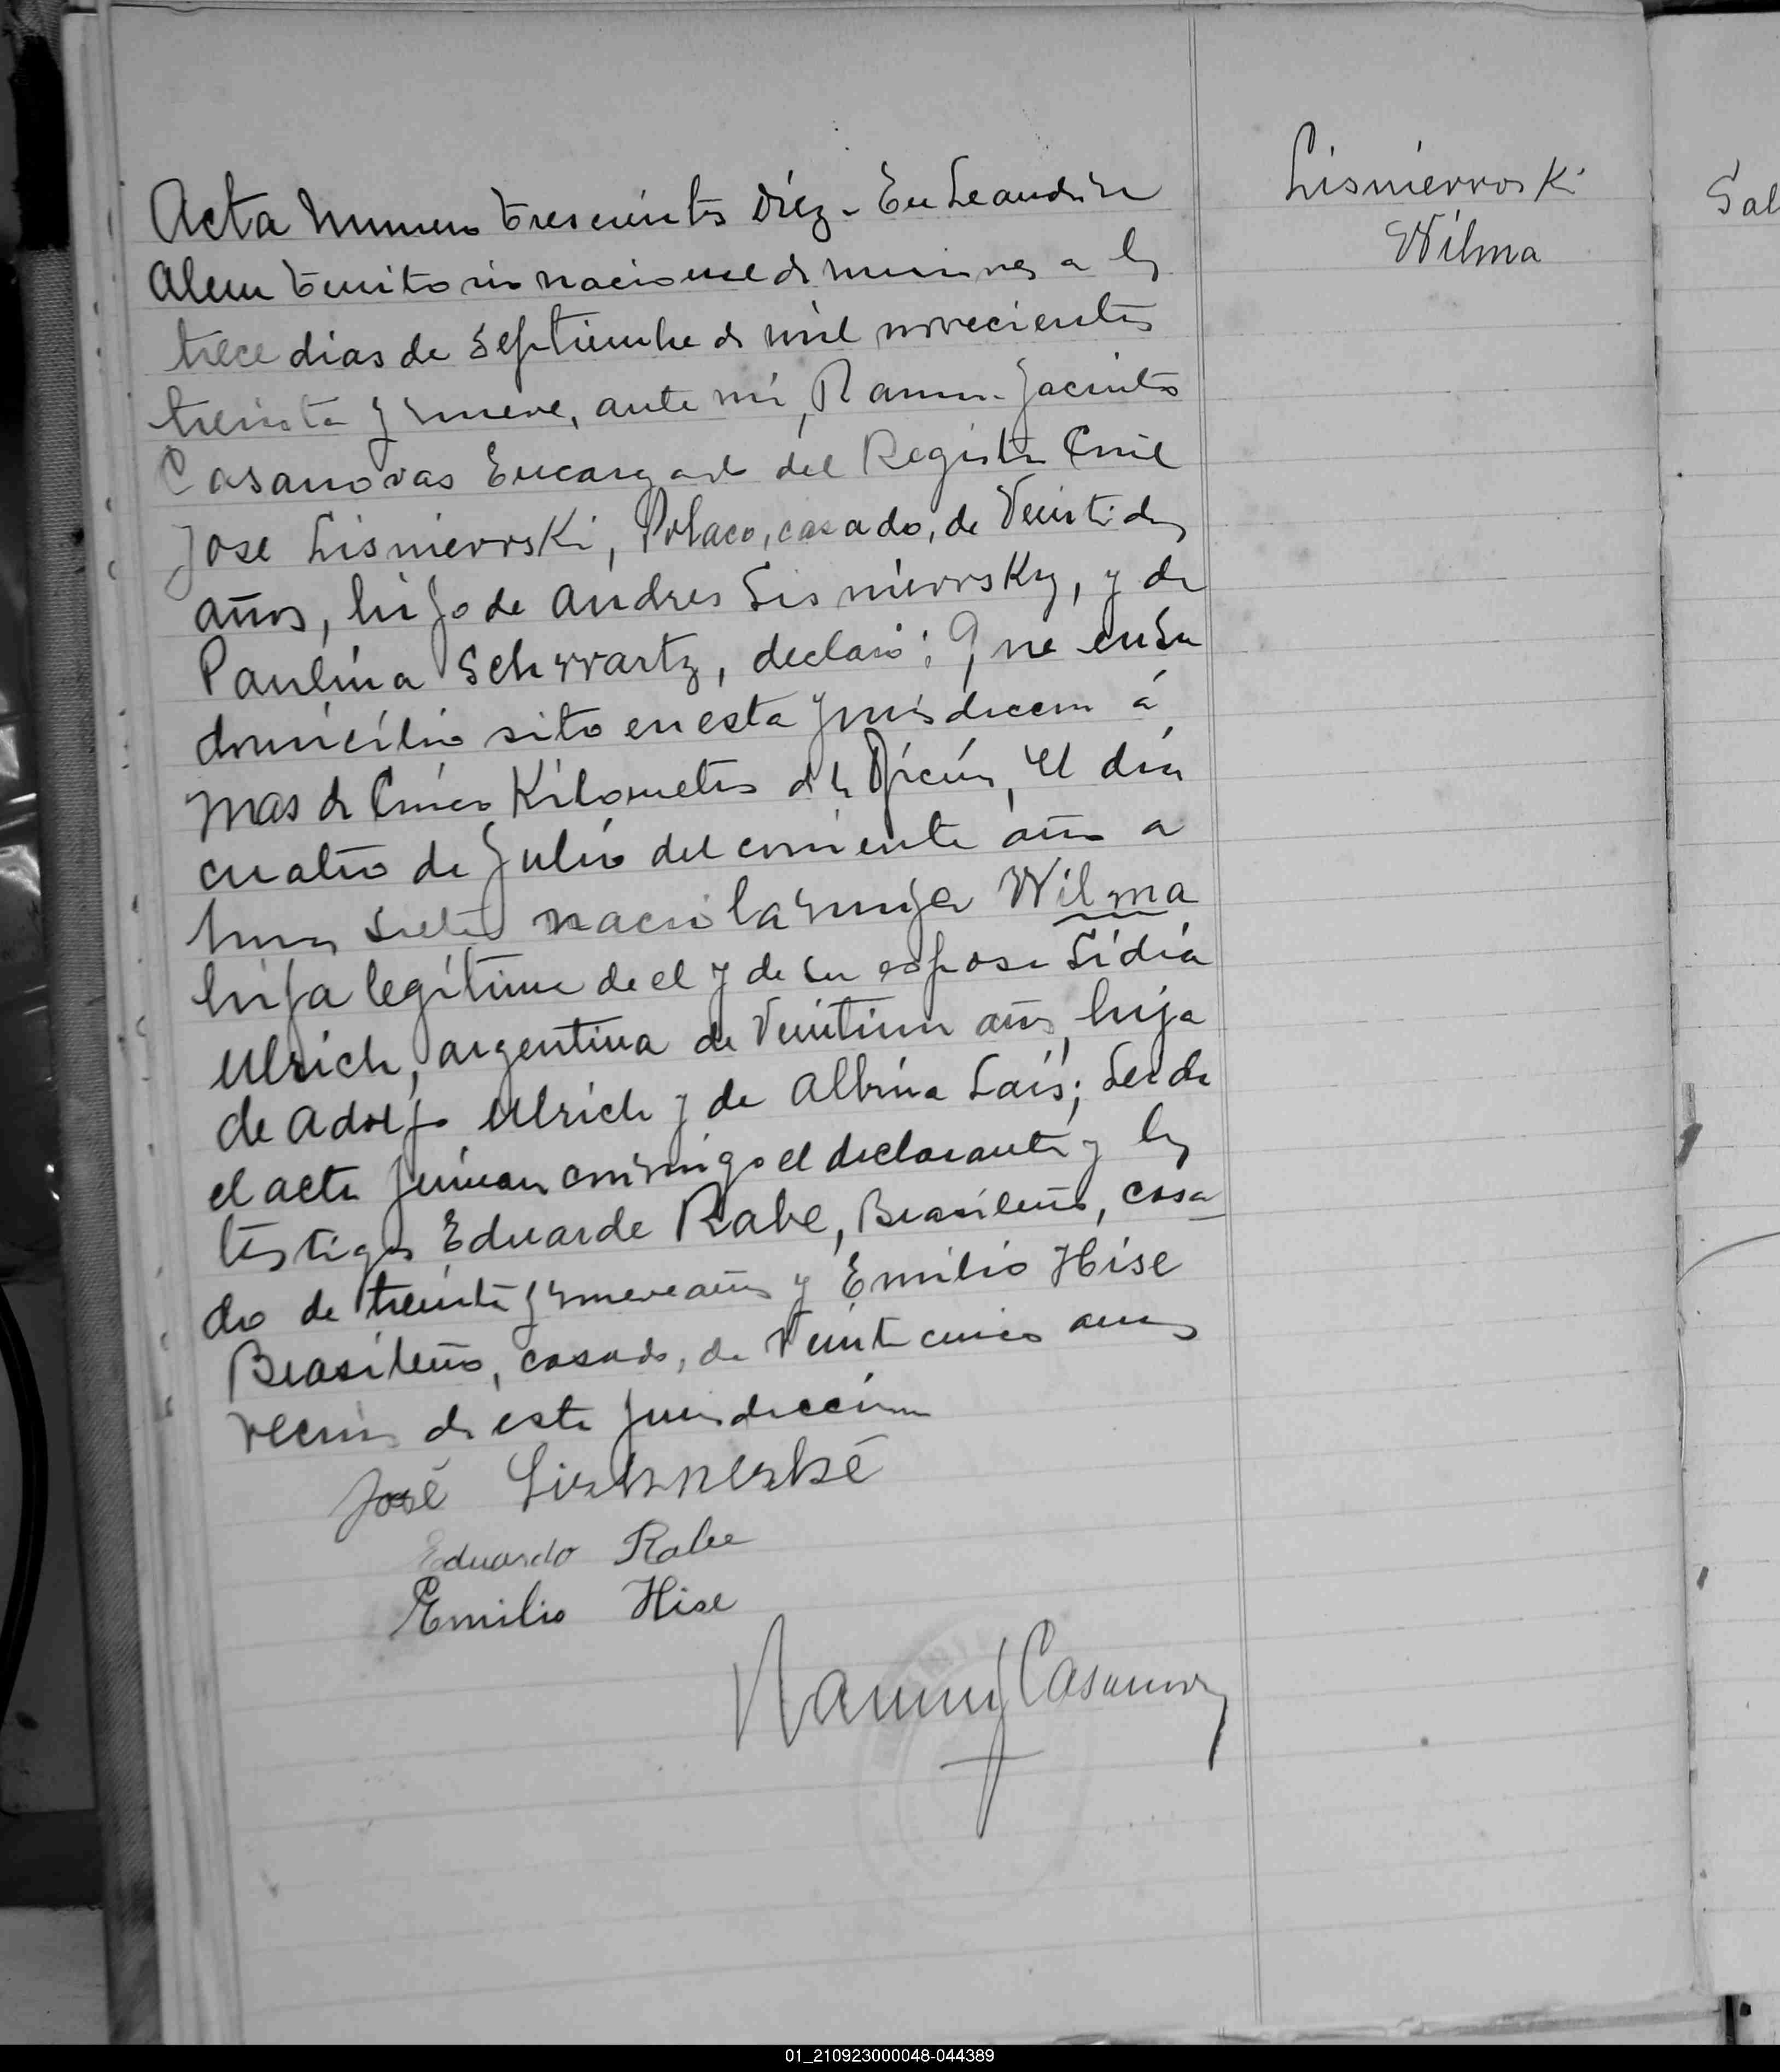 Acta Numero trescientos diez - En Leandro N
Alem territorio nacional de misiones a los
trece dias de Septiembre de mil novecientos
treinta y nueve, ante mi, Ramon Jacinto
Casanovas Encargado del Registro Civil
Jose Lisniewski, Polaco, casado, de Veintidos
años, hijo de Andres Lisniewsky, y de
Paulina Schwartz, declaró; Que en su
domicilio sito en esta jurisdiccion á
mas de Cinco Kilometros de la Oficina, el dia
cuatro de Julio del corriente año a
horas siete nació la mujer Wilma
hija legítima de el y de su esposa Lidia
Ulrich, argentina de Veintiun años, hija
de Adolfo Ulrich y de Albina Lais; Leida
el acta firman conmigo el declarante y los
testigos Eduardo Rabe, Brasileño, casa
do de treinta y nueve años y Emilio Hise
Brasileño, casado, de Veinte cinco años
vecinos de esta jurisdiccion
José
Eduardo Rabe
Emilio Hise
Ramon J Casanovas
Lisniewski
Wilma
Sal
01_210923000048-044389